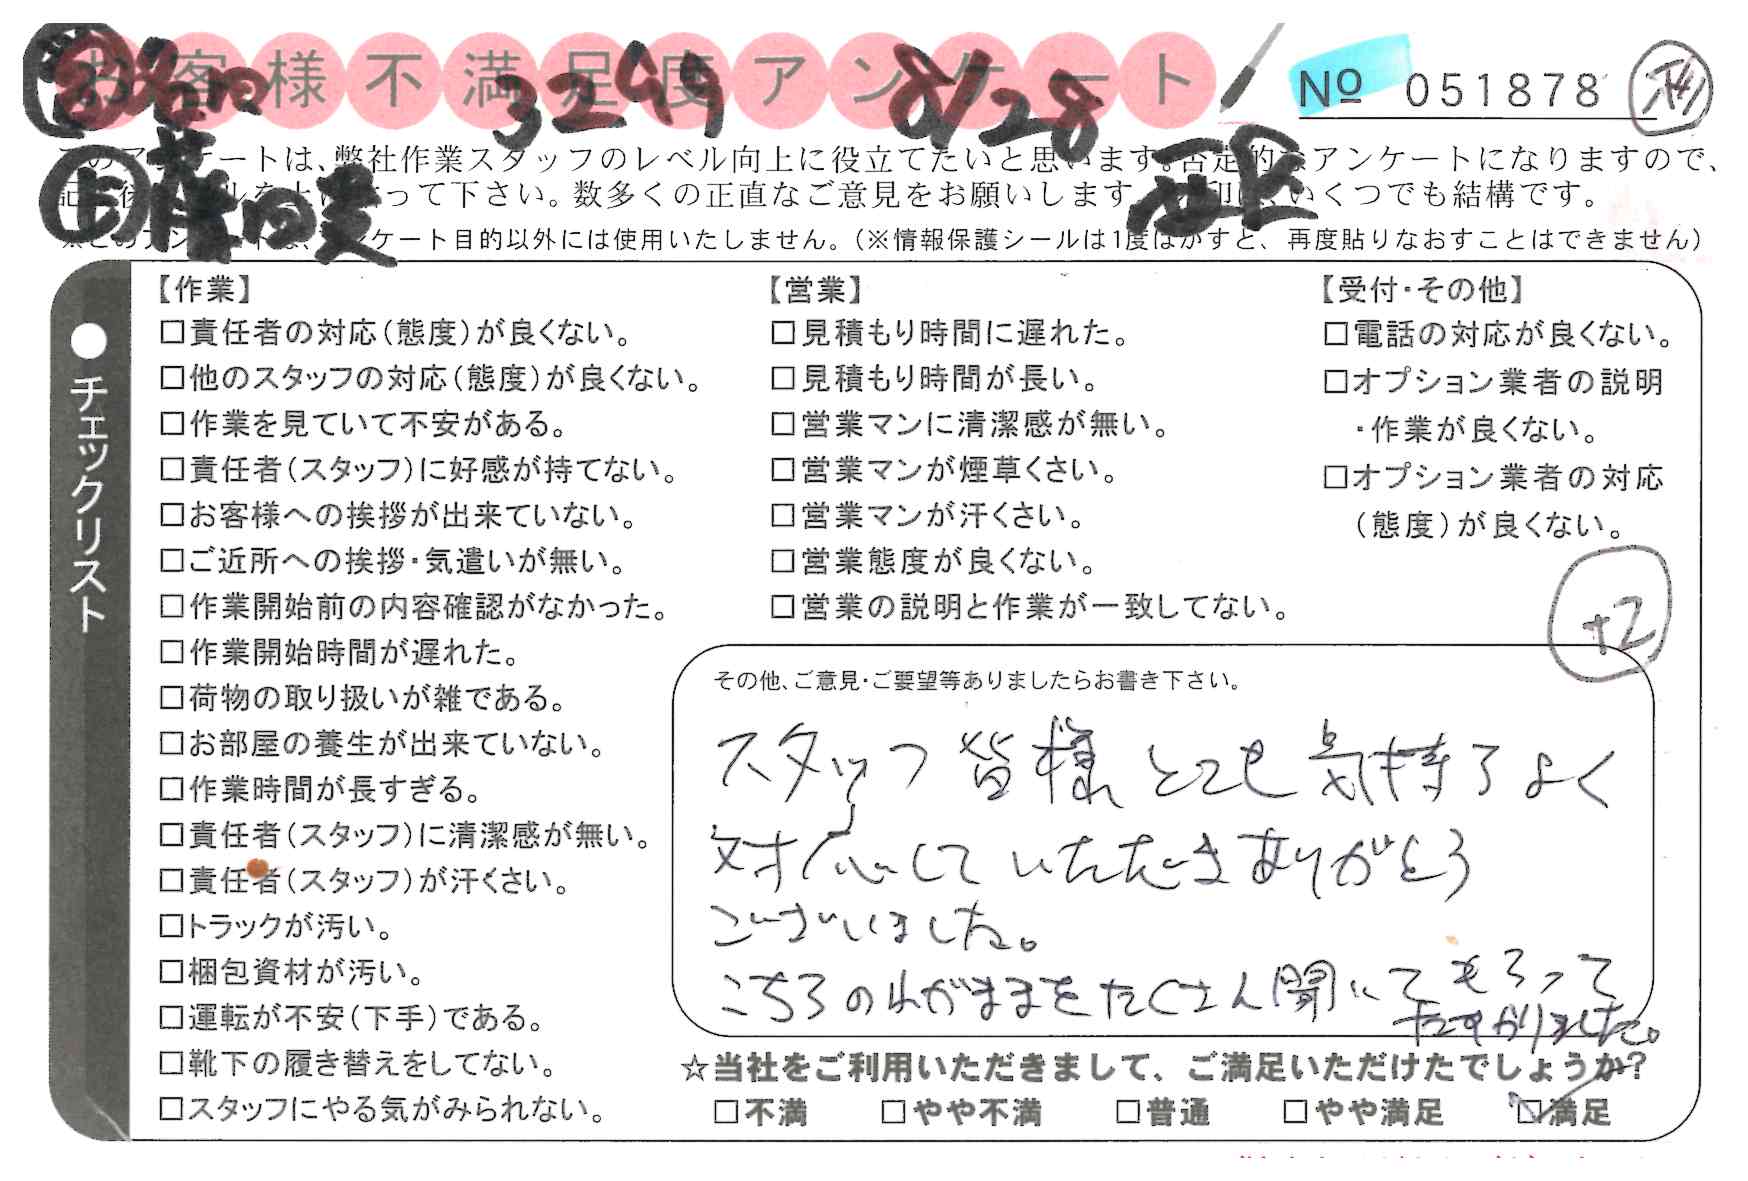 お客様不満足度アンケート
3249
8/28
No 051878
西区
このアンケートは、弊社作業スタッフのレベル向上に役立てたいと思います。否定的なアンケートになりますので、
って下さい。数多くの正直なご意見をお願いします いくつでも結構です。
ケート目的以外には使用いたしません。(※情報保護シールは1度はがすと、再度貼りなおすことはできません)
●チェックリスト
【作業】
□責任者の対応(態度)が良くない。
□他のスタッフの対応(態度)が良くない。
□作業を見ていて不安がある。
□責任者(スタッフ)に好感が持てない。
□お客様への挨拶が出来ていない。
□ご近所への挨拶・気遣いが無い。
□作業開始前の内容確認がなかった。
□作業開始時間が遅れた。
□荷物の取り扱いが雑である。
□お部屋の養生が出来ていない。
□作業時間が長すぎる。
□責任者(スタッフ)に清潔感が無い。
□責任者(スタッフ)が汗くさい。
□トラックが汚い。
□梱包資材が汚い。
□運転が不安(下手)である。
□靴下の履き替えをしてない。
□スタッフにやる気がみられない。
【営業】
□見積もり時間に遅れた。
□見積もり時間が長い。
□営業マンに清潔感が無い。
□営業マンが煙草くさい。
□営業マンが汗くさい。
□営業態度が良くない。
□営業の説明と作業が一致してない。
【受付・その他】
□電話の対応が良くない。
□オプション業者の説明
・作業が良くない。
□オプション業者の対応
(態度)が良くない。
+2
その他、ご意見・ご要望等ありましたらお書き下さい。
スタッフ皆様とても気持ちよく
対応していただきありがとう
ございました。
こちらのわがままをたくさん聞いてもらって
たすかりました。
☆当社をご利用いただきまして、ご満足いただけたでしょうか?
□不満 □やや不満 □普通 □やや満足 ☑満足